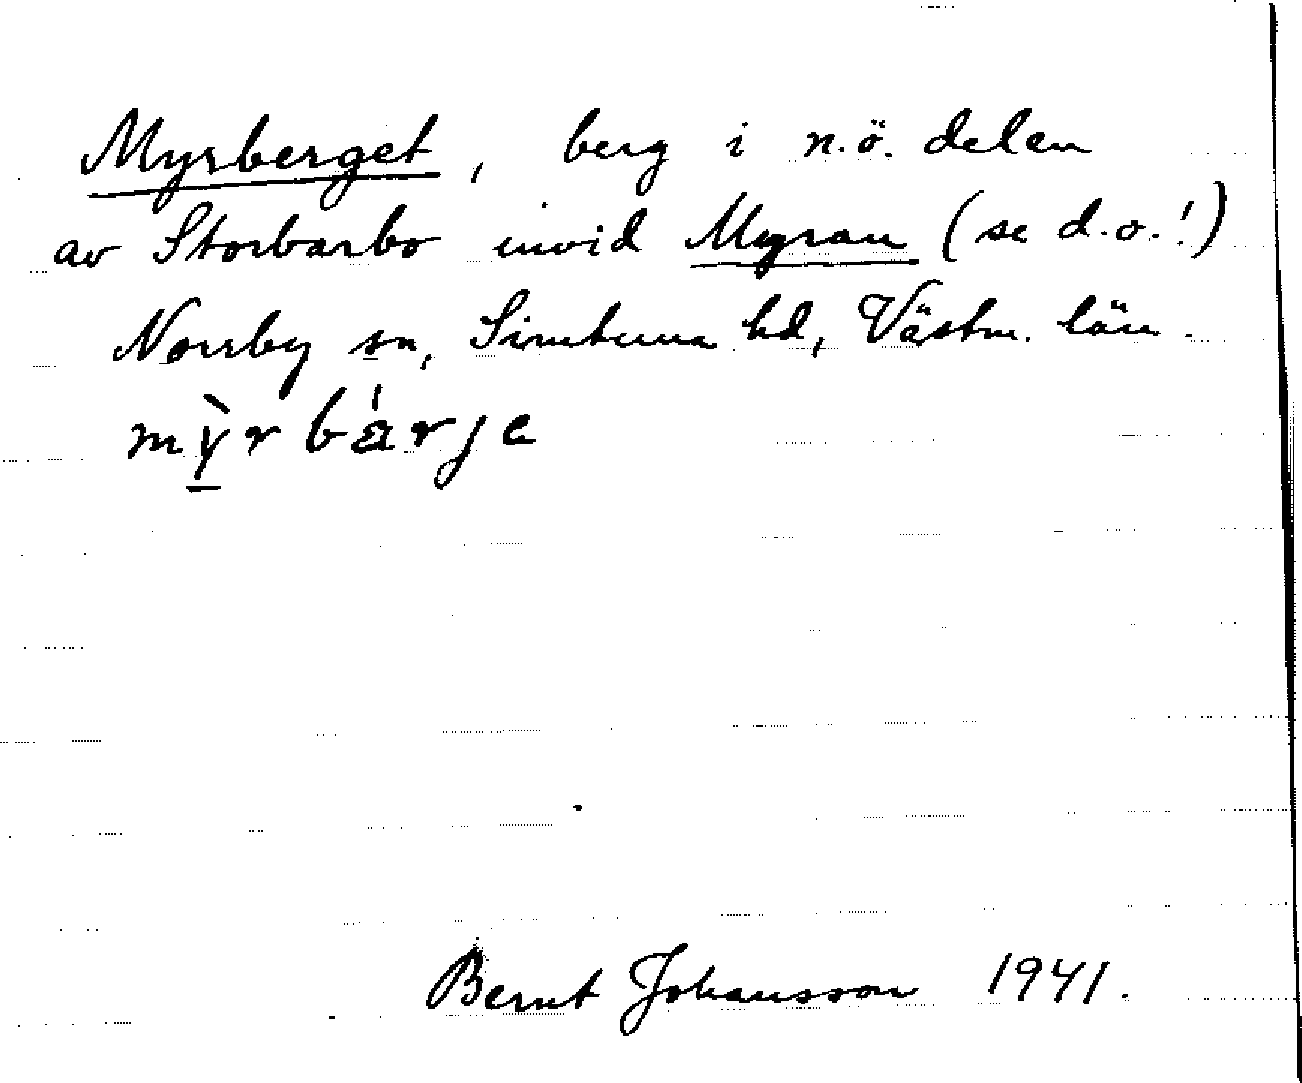 Myrberget, berg i n.ö. delen
av Storbarbo invid Myran (se d.o.!)
Norrby sn, Simtuna hd, Västm. län.
mỳ̱rbá̤rje
Bernt Johansson 1941.